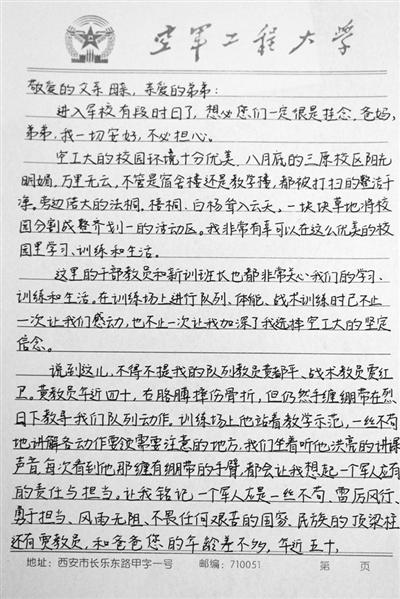 空军工程大学
敬爱的父亲母亲，亲爱的弟弟：
进入军校有段时日了，想必您们一定很是挂念，爸妈，
弟弟，我一切安好，不必担心。
空工大的校园环境十分优美，八月底的三原校区阳光
明媚，万里无云，不管是宿舍楼还是教学楼，都被打扫的整洁干
净。旁边高大的法桐、梧桐、白杨耸入云天，一块块草地将校
园分割成整齐划一的活动区。我非常有幸可以在这么优美的校
园里学习、训练和生活。
这里的干部教员和新训班长也都非常关心我们的学习、
训练和生活。在训练场上进行队列、体能、战术训练时已不止
一次让我们感动，也不止一次让我加深了我选择空工大的坚定
信念。
说到这儿，不得不提我的队列教员黄都平、战术教员贾红
卫。黄教员年近四十，右胳膊摔伤骨折，但仍然手缠绷带在烈
日下教导我们队列动作。训练场上他站着教学示范，一丝不苟
地讲解各动作要领需要注意的地方，我们坐着听他洪亮的讲课
声音，每次看到他那缠有绷带的手臂，都会让我想起一个军人应有
的责任与担当。让我铭记一个军人应是一丝不苟、雷厉风行、
勇于担当、风雨无阻、不畏任何艰苦的国家、民族的顶梁柱
还有贾教员，和爸爸您的年龄差不多，年近五十，
地址：西安市长乐东路甲字一号 邮编：710051 第 页